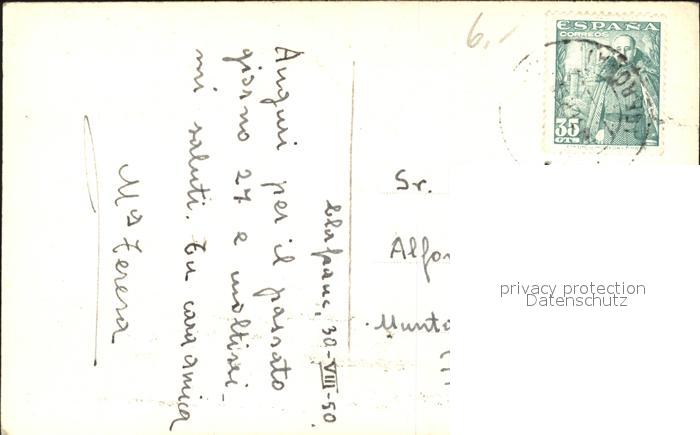 30-VIII-50
Auguri per il passato
giorno 27 e moltissi-
mi saluti. Tu cara amica
Mª Teresa
Sr.
Alfon
Munta
6.-
ESPAÑA
CORREOS
35
CTS
privacy protection
Datenschutz